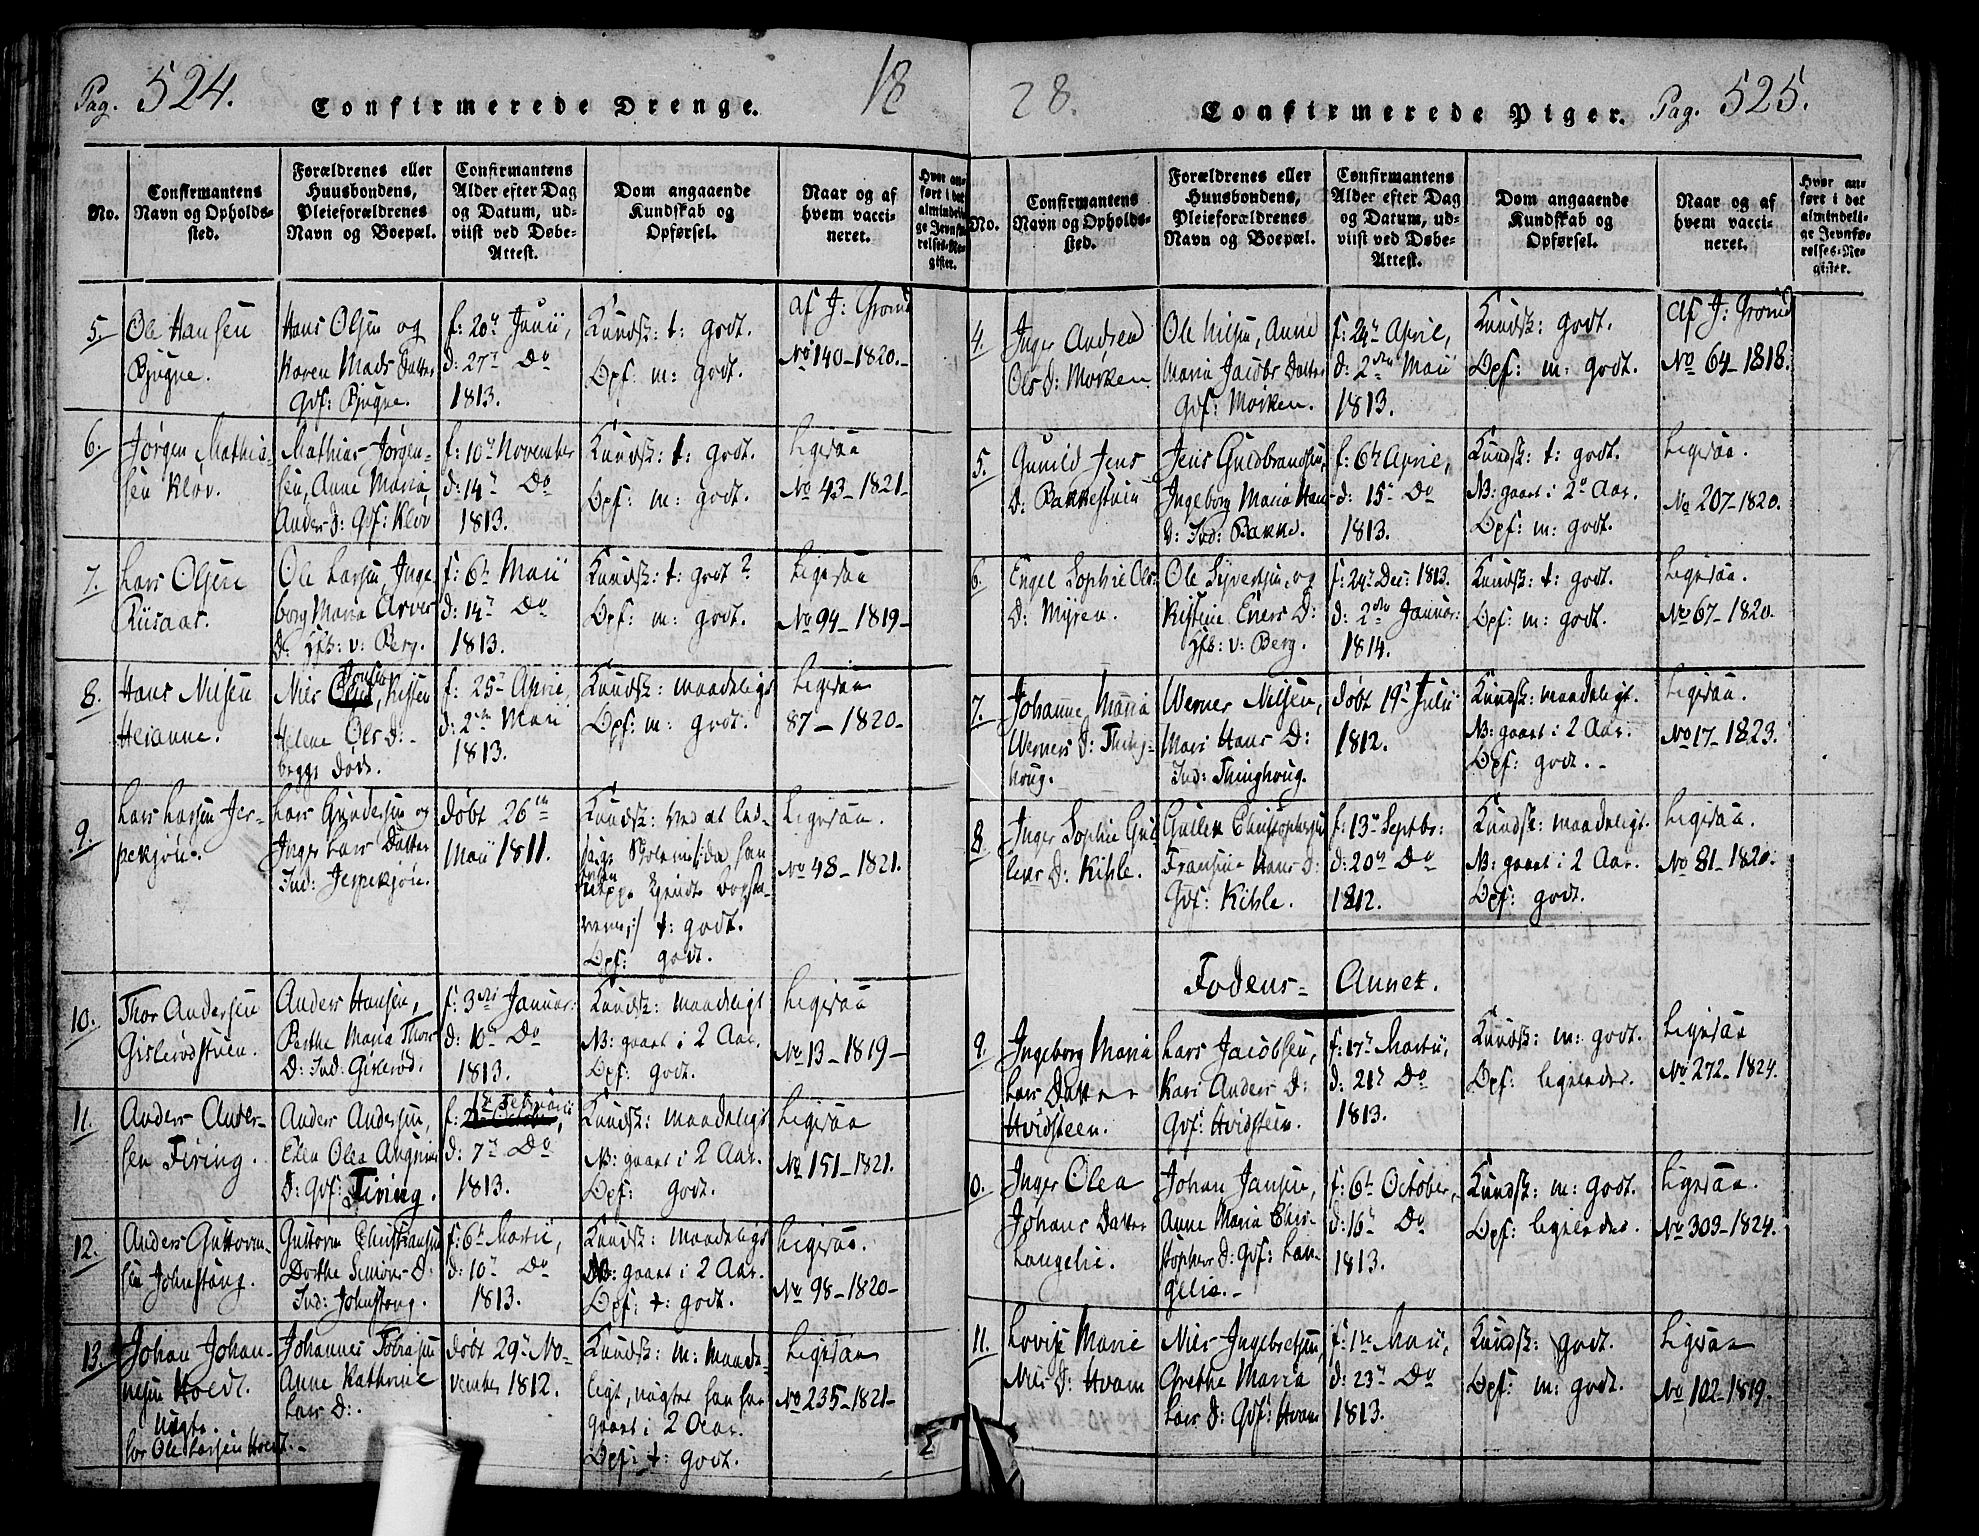 Pag. 524.
Confirmerede Drenge.
18
No.
Confirmantens Navn og Opholds-sted.
Forældrenes eller Huusbondens, Pleieforældrenes Navn og Boepæl.
Confirmantens Alder efter Dag og Datum, ud-viist ved Døbe-Attest.
Dom angaaende Kundskab og Opførsel.
Naar og af hvem vacci-neret.
5.
Ole Hansen
Bjugne.
Hans Olsen og
Karen Mads Datter
Gdf: Bjugne.
f: 20de Junii,
d: 27de Do
1813.
Kundsk: t: godt.
Opf: m: godt.
af J: Grønd
No 140-1820.
6.
Jørgen Mathia-
sen Kløv.
Mathias Jørgen-
sen, Anne Maria,
Anders D: Gdf: Kløv
f: 10de November
d: 14de Do
1813.
Kundsk: t: godt.
Opf: m: godt.
Ligesaa
No 43-1821-
7.
Lars Olsen
Riisaas.
Ole Larsen, Inge
borg Maria
D: Hfs: v: Berg.
f: 6te Maii
d: 14de Do
1813.
Kundsk: t: godt?
Opf: m: godt.
Ligesaa
No 94-1819-
8.
Hans Nilsen
Nils Jonsen
Helene Ols D:
begge døde.
f: 25de April,
d: 2den Maii
1813.
Kundsk: maadeligt
Opf: m: godt.
Ligesaa
87-1820-
9.
Lars Larsen Jer-
pekjøn.
Lars Gundersen og
Inger Lars Datter
Ind: Jerpekjøn.
døbt 26de
Maii 1811.
Kundsk: ved at
t: godt.
Opf: godt.
Ligesaa.
No 48-1821.
10.
Thor Andersen
Gislerødstuen.
Anders Hansen,
Berthe Maria Thor
D: Ind: Gislerød.
f: 3die Januar:
d: 10de Do
1813.
Kundsk: maadeligt
N: gaaet i 2 Aar.
Opf: godt.
Ligesaa
No 13-1819-
11.
Anders Ander-
sen Firing.
Anders Andersen,
Ellen Olea
D: Gdf: Firing.
f: 1ste Februarii
d: 7de Do
1813.
Kundsk: maadeligt
N: gaaet i 2 Aar.
Opf: godt.
Ligesaa
No 151-1821.
12.
Anders Guttorm-
sen Johnstang.
Guttorm Christiansen
Dorthe Simons D:
Ind: Johnstang.
f: 6te Martii,
d: 10de Do
1813.
Kundsk: maadeligt
N: gaaet i 2 Aar.
Opf: t: godt.
Ligesaa.
No 98-1820-
13.
Johan Johan-
nesen Holdt.
hos Ole Larsen Holdt.
Johannes Tobiasen
Anne Kathrine
Lars D:.
døbt 29de No-
vember 1812.
Kundsk: m: maade-
ligt,
gaaet i 2 Aar.
Opf: t: godt.
Ligesaa
No 235-1821-
28.
Confirmerede Piger.
Pag. 525.
No.
Confirmantens Navn og Opholds-sted.
Forældrenes eller Huusbondens, Pleieforældrenes Navn og Boepæl.
Confirmantens Alder efter Dag og Datum, ud-viist ved Døbe-Attest.
Dom angaaende Kundskab og Opførsel.
Naar og af hvem vacci-neret.
Hvor an-ført i det almindeli-ge Jevnfø-relses-Re-gister.
4.
Inger Andrea
Ols D: Morken
Ole Nilsen, Anne
Maria Jacobs Datter
Gdf: Morken.
f: 24de April,
d: 2den Maii
1813.
Kundsk: godt.
Opf: m: godt.
af J: Grønd
No 64-1818.
5.
Gunild Jens
D: Bakkestuen
Jens Guldbrandsen,
Ingeborg Maria Hans
D: Ind: Bakke.
f: 6te April,
d: 15de Do
1813.
Kundsk: t: godt.
N: gaaet i 2de Aar.
Opf: m: godt.
Ligesaa.
No 207-1820.
6.
Engel Sophie Ols
D: Myren.
Ole Syversen, og
Kistine Eners D:
Hfs: v: Berg.
f: 24de Dec: 1813.
d: 2den Januar:
1814.
Kundsk: t: godt.
Opf: m: godt.
Ligesaa.
No 67-1820.
7.
Johanne Maria
Werners D: Thing-
houg.
Werner Nilsen,
Mari Hans D:
Ind: Thinghoug.
døbt 19de Julii
1812.
Kundsk: maadeligt.
N: gaaet i 2 Aar.
Opf: godt.-
Ligesaa.
No 17-1823.
8.
Inger Sophie Gul
leks D: Kihle.
Gullek Christophersen
Fransine Hans D:
Gdf: Kihle.
f: 13de Septbr:
d: 20de Do
1812.
Kundsk: maadeligt.
N: gaaet i 2 Aar.
Opf: godt.
Ligesaa.
No 81-1820.
Fodens- Annex.
9.
Ingeborg Maria
Lars Datter
Hvidsteen.
Lars Jacobsen,
Kari Anders D:
Gdf: Hvidsteen.
f: 17de Martii,
d: 21de Do
1813.
Kundsk: m: godt.
Opf: ligeledes.
Ligesaa
No 272-1824.
0.
Inger Olea
Johans Datter
Langelie.
Johan Jansen,
Anne Maria Chri-
stophers D: Gdf: Lan-
gelie.-
f: 6te October,
d: 16de Do
1813.
Kundsk: m: godt.
Opf: ligeledes.
Ligesaa.
No 303-1824.
11.
Lovise Marie
Nils D: Hvam
Nils Ingebretsen,
Grethe Maria
Lars D: Gdf: Hvam
f: 1ste Maii,
d: 23de Do
1813.
Kundsk: godt.
Opf: m: godt.
Ligesaa
No 102-1819.